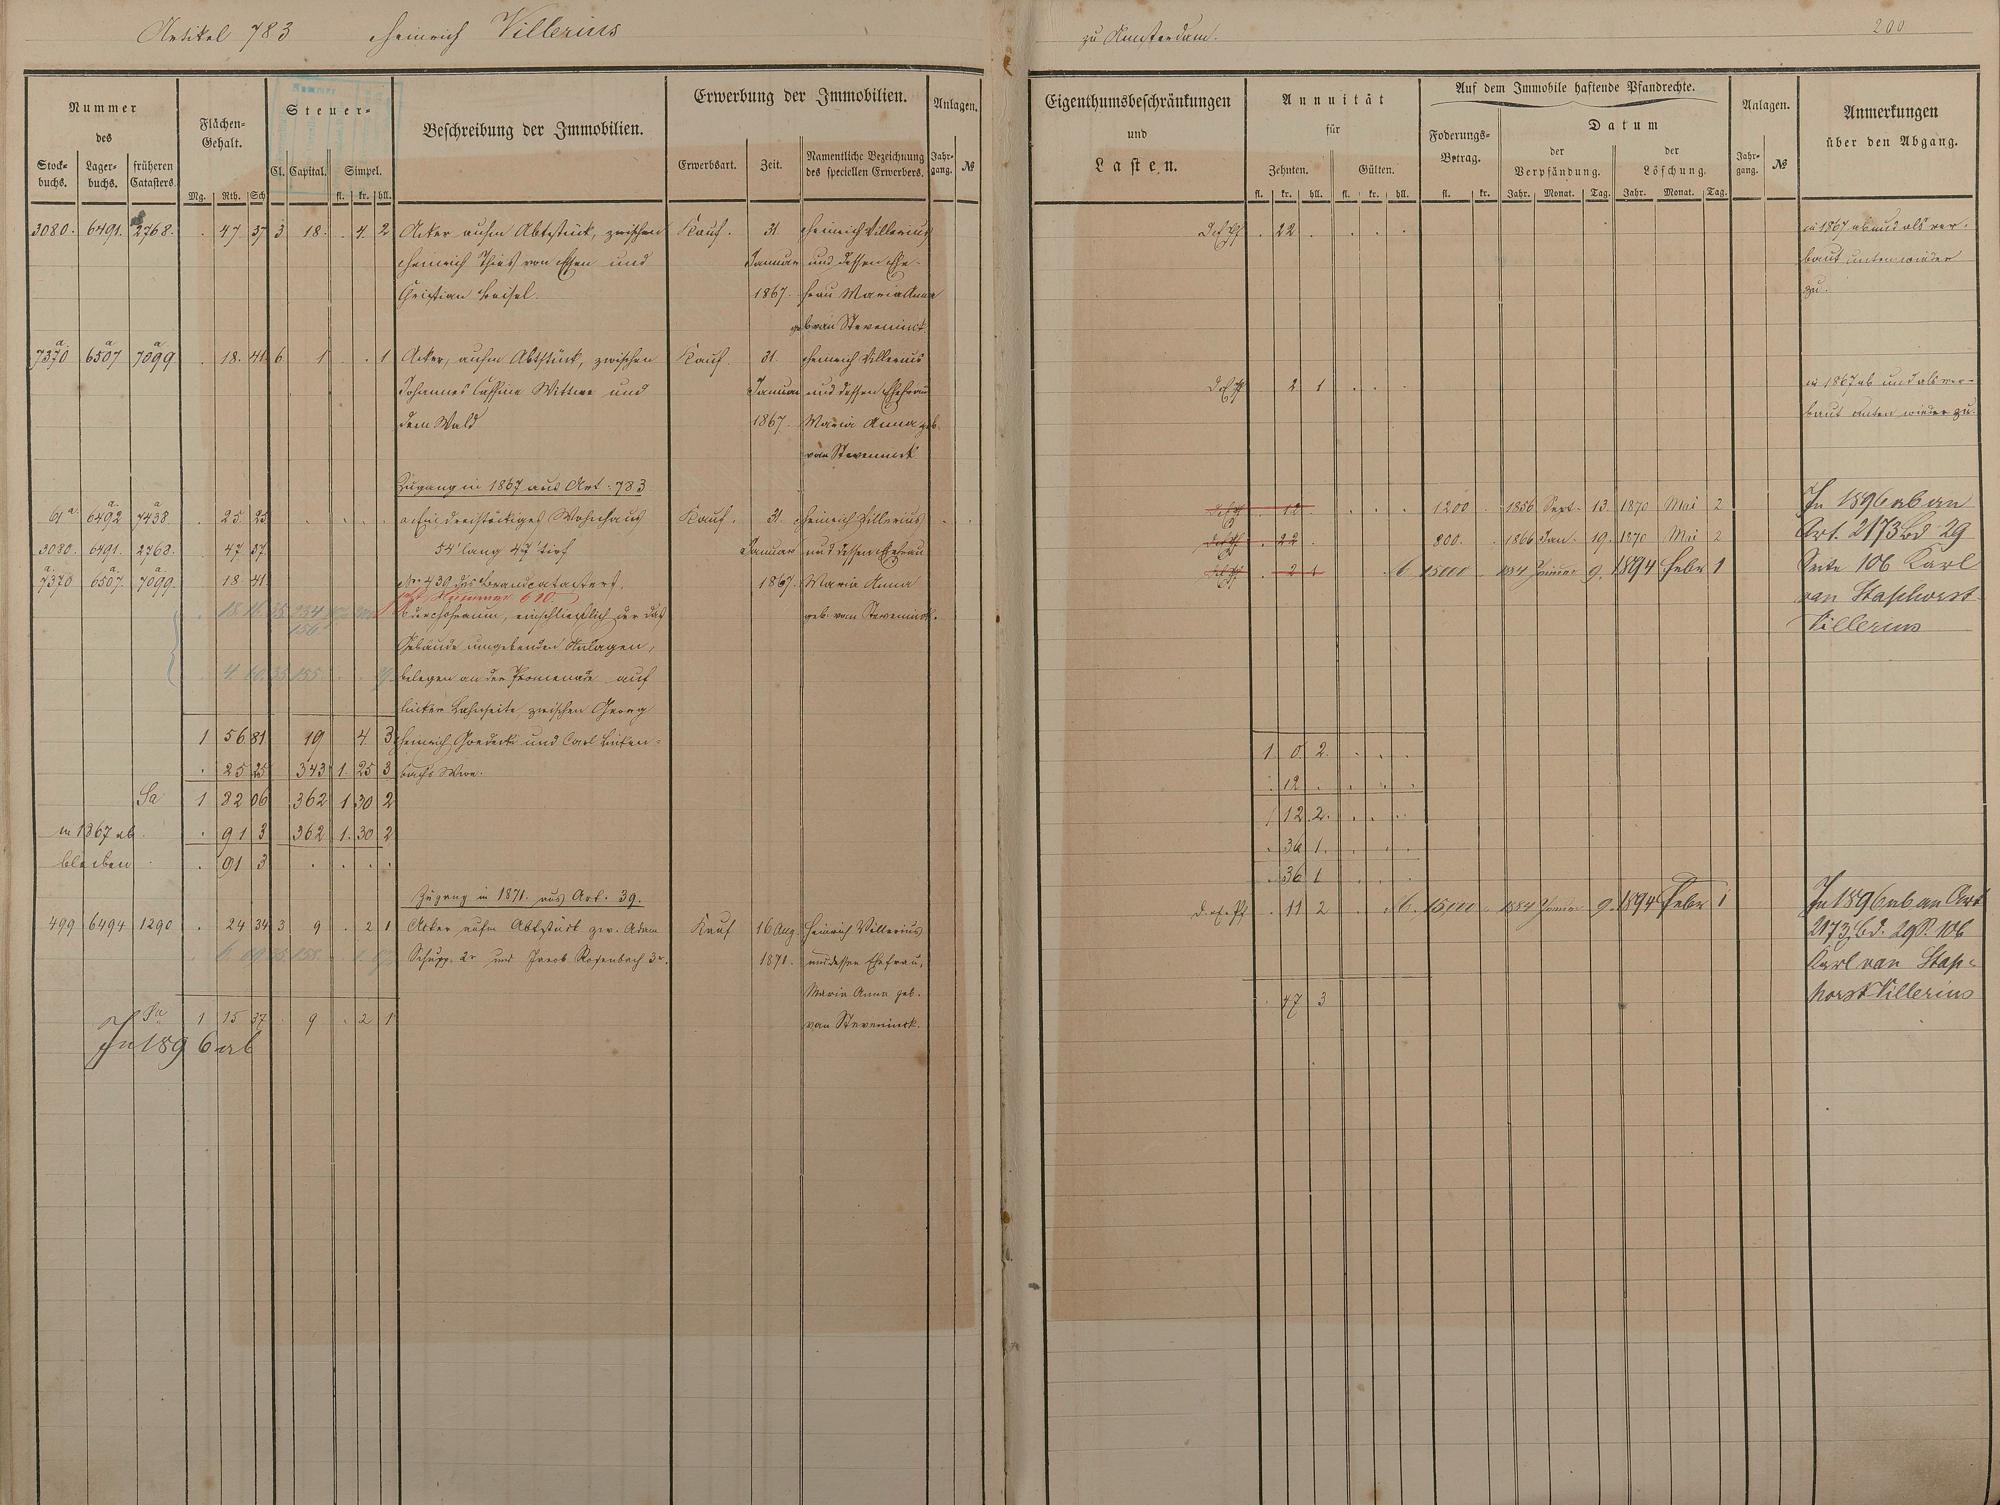 Artikel 783 Heinrich Villerius zu Amsterdam. 200
Nummer des
Stockbuchs. Lagerbuchs. früheren Catasters.
Flächen-Gehalt.
Mg. Rth. Sch
Steuer-
Cl. Capital. Simpel.
fl. kr. hll.
Beschreibung der Immobilien.
Erwerbung der Immobilien.
Erwerbsart. Zeit. Namentliche Bezeichnung des speciellen Erwerbers.
Anlagen.
Jahrgang. №
Eigenthumsbeschränkungen und Lasten.
Annuität für
Zehnten. Gülten.
fl. kr. hll. fl. kr. hll.
Auf dem Immobile haftende Pfandrechte.
Foderungs-Betrag.
fl. kr.
Datum
der Verpfändung. der Löschung.
Jahr. Monat. Tag. Jahr. Monat. Tag.
Anlagen.
Jahrgang. №
Anmerkungen über den Abgang.
3080. 6491. 2768. . 47 37 3 18. . 4. 2 Acker aufm Abtsstück, zwischen Kauf. 31 Heinrich Villerius . 22 . in 1867 ab und als ver-
Heinrich Thies von Essen und Januar und dessen Ehe- baut unten wieder
Christian Beisel. 1867. frau Maria Anna zu.
geb van Steveninck.
a. a a
7370 6507 7099 . 18. 41. 6 1 . . 1 Acker, aufm Abtstück, zwischen Kauf 31. Heinrich Villerius . 2 1 in 1867 ab und als ver-
Johannes Wittwe und Januar und dessen Ehefrau baut unten wieder zu.
dem Wald 1867. Maria Anna geb.
van Steveninck
Zugang in 1867 aus Art. 783
61 a. 6492 a. 7438 a. . 25. 25 a, Ein dreistöckiges Wohnhaus Kauf. 31. Heinrich Villerius . 12 . 1200 . 1856 Sept. 13. 1870 Mai 2 In 1896 ab an
3080. 6491. 2768. . 47 37. 54' lang 47' tief Januar und dessen Ehefrau . 22 . 800. . 1866 Jan. 19. 1870 Mai 2 Art. 2173 Bd 29
7370 a. 6507. a. 7099. a. . 18. 41. Nr. 439 des Brandcatasters. 1867. Maria Anna . 2 1 6 15000 1884 Januar 9. 1894 Febr 1 Seite 106 Karl
Nummer 610.
b, der Hofraum, einschließlich der das geb. van Steveninck. van Staphorst
Gebäude umgebenden Anlagen, Villerius
belegen an der Promenade auf
linker Lahnseite, zwischen Georg
1 56 81 19 4. 3 Heinrich Goedecke und Carl 1 0. 2.
. 25 25 343 1. 25 3 Wwe. . 12 .
Sa 1 82 06 362 1. 30 2 1 12 2.
in 1867 ab . . 91 3 362 1. 30 2 . 36 1.
bleiben . . 91 3 . . . . . 36 1
Zugang in 1871. aus Art. 39.
499 6494 1290 . 24 34 3 9 . 2 1 Acker aufm Abtstück zw. Adam Kauf 16 Aug. Heinrich Villerius . 11 2 6. 15000 1884 Januar 9. 1894 Febr 1 In 1896 ab an Art
Schupp 2r und Jacob Rosenbach 3r. 1871. und dessen Ehefrau, 2173, Bd. 29 S. 106
Maria Anna geb. Karl van Stap-
Sa 1 15 37 . 9 . 2 1 van Steveninck. . 47 3 horst Villerius
In 1896 ab